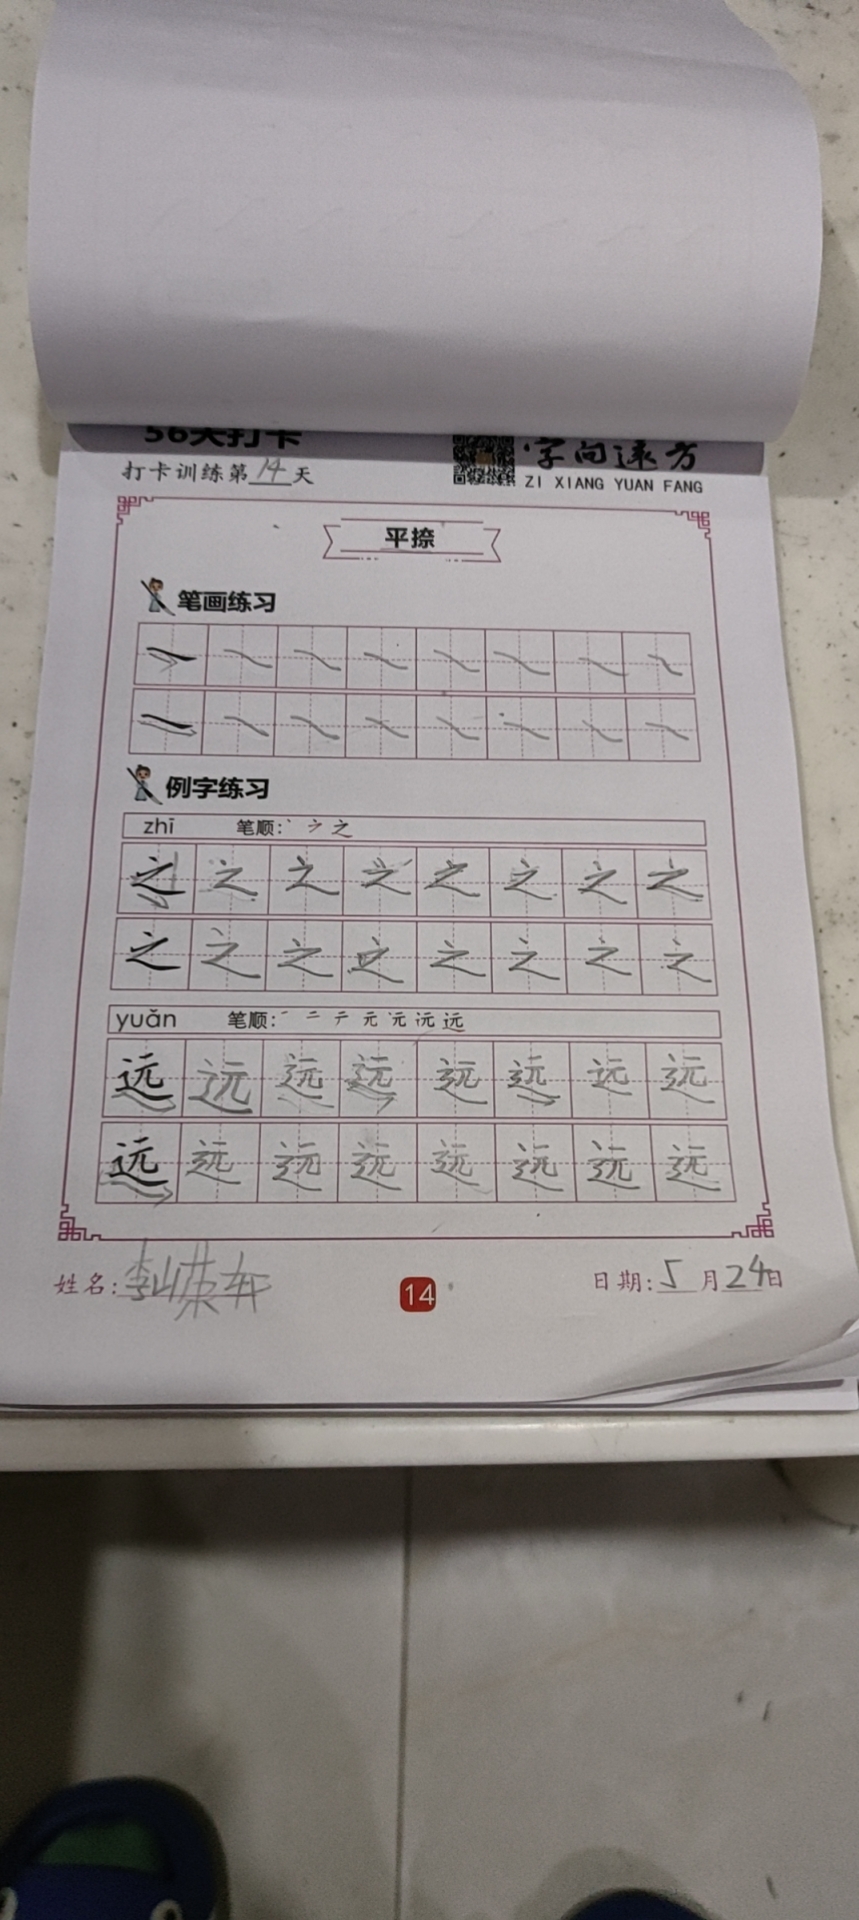 56天打卡
字向远方
打卡训练第14天
ZI XIANG YUAN FANG
平捺
笔画练习
例字练习
zhī 笔顺:丶 ㇇ 之
之 之 之 之 之 之 之 之
之 之 之 之 之 之 之 之
yuǎn 笔顺:一 二 テ 元 远 远
远 远 远 远 远 远 远 远
远 远 远 远 远 远 远 远
姓名:
14
日期:5月24日